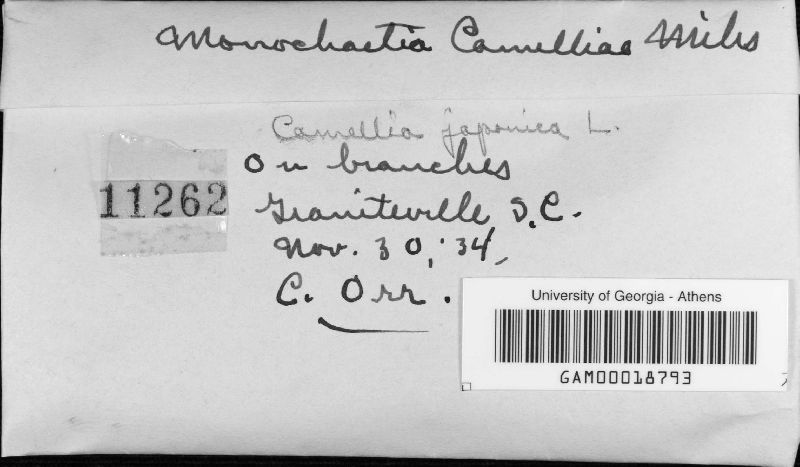 Monochaetia Camelliae Miles
Camellia japonica L.
On branches
11262
Graniteville, S.C.
Nov. 30, '34,
C. Orr.
University of Georgia - Athens
GAM00018793